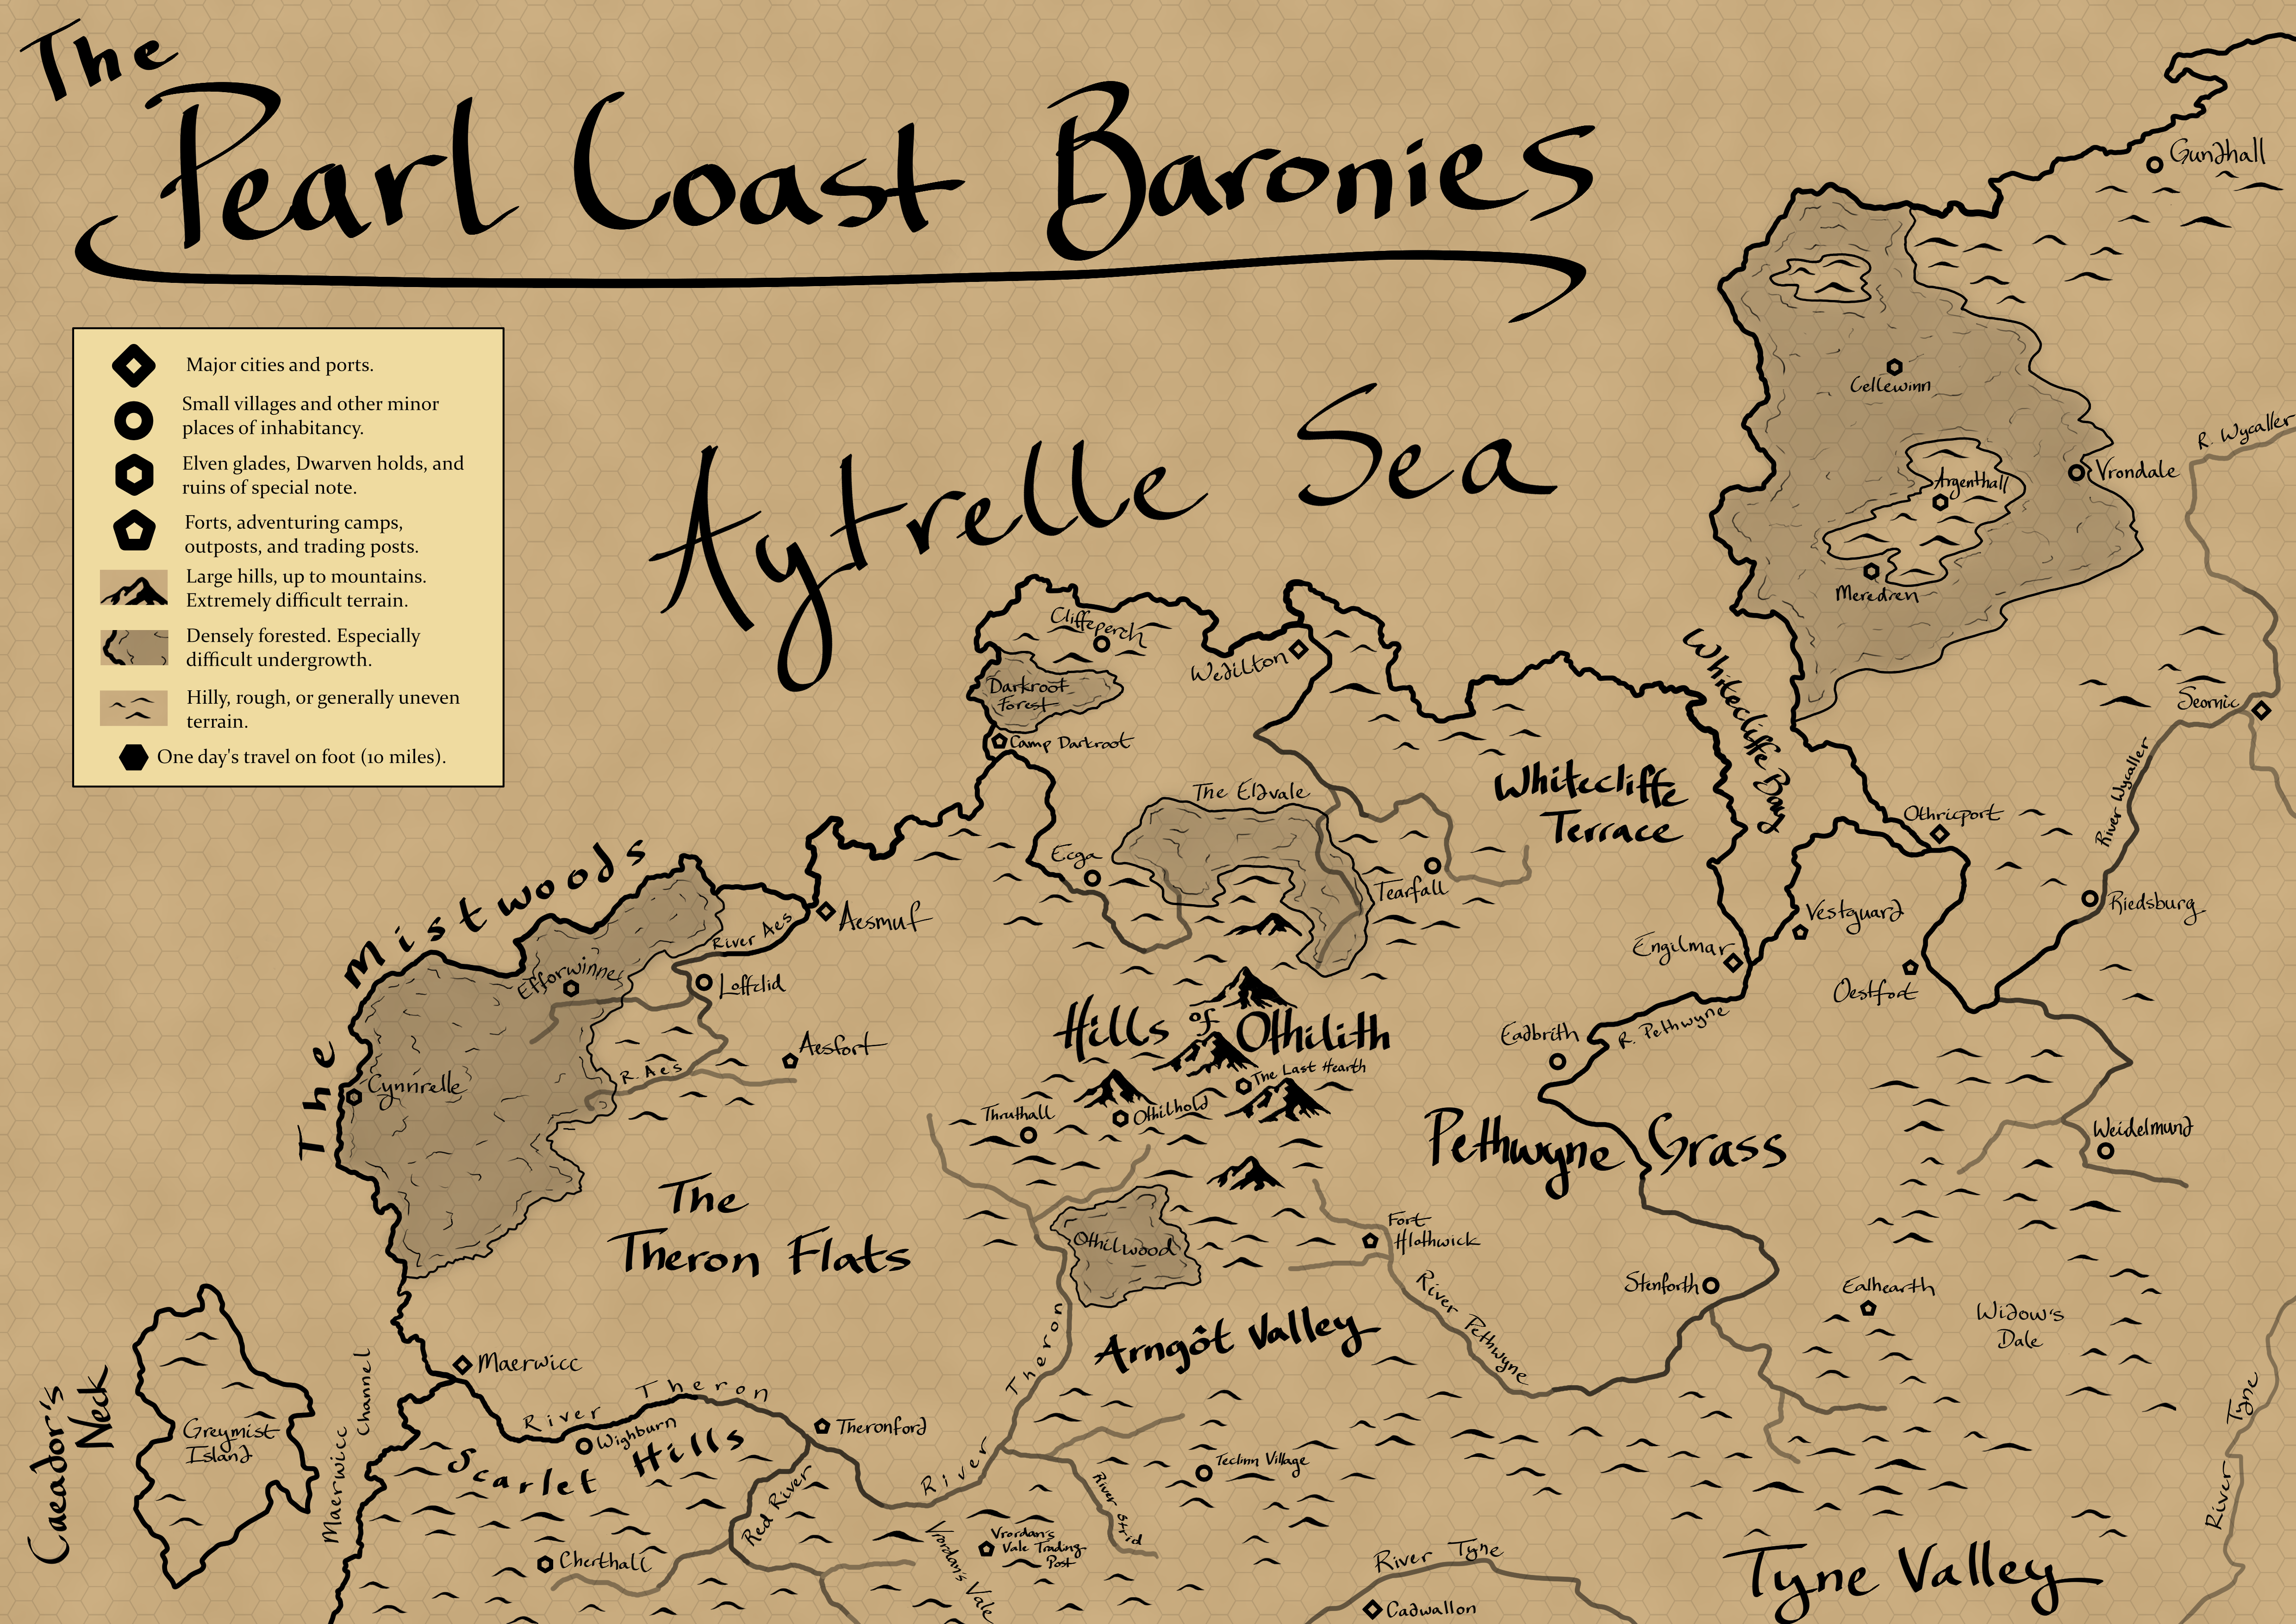 The
Pearl Coast Baronies
Major cities and ports.
Small villages and other minor
places of inhabitancy.
Elven glades, Dwarven holds, and
ruins of special note.
Forts, adventuring camps,
outposts, and trading posts.
Large hills, up to mountains.
Extremely difficult terrain.
Densely forested. Especially
difficult undergrowth.
Hilly, rough, or generally uneven
terrain.
One day's travel on foot (10 miles).
Aytrelle Sea
Gundhall
Cellewinn
R. Wycaller
Vrondale
Argenthall
Meredren
Cliffeperch
Wedilton
Darkroot
Forest
Camp Darkroot
Whitecliffe Bay
Seornic
River Wycaller
The Eldvale
Whitecliffe
Terrace
Othricport
Ecga
Tearfall
Riedsburg
Vestguard
Engilmar
Oestfort
The Mistwoods
River Aes
Aesmuf
Efforwinne
Loffclid
Aesfort
R. Aes
Cynnrelle
Hills of Othilith
The Last Hearth
Othilhold
Thruthall
Eadbrith
R. Pethwyne
Pethwyne Grass
Weidelmund
The
Theron Flats
Othilwood
Fort
Hlothwick
River Pethwyne
Stenforth
Ealhearth
Widow's
Dale
Arngôt Valley
Maerwicc
Maerwicc Channel
Caeador's
Neck
Greymist
Island
River Theron
Wighburn
Scarlet Hills
Theronford
River Theron
Red River
River Strid
Teclmn Village
Cherthall
Vrordan's
Vale Trading
Post
Vrordan's Vale
River Tyne
Cadwallon
Tyne Valley
River Tyne